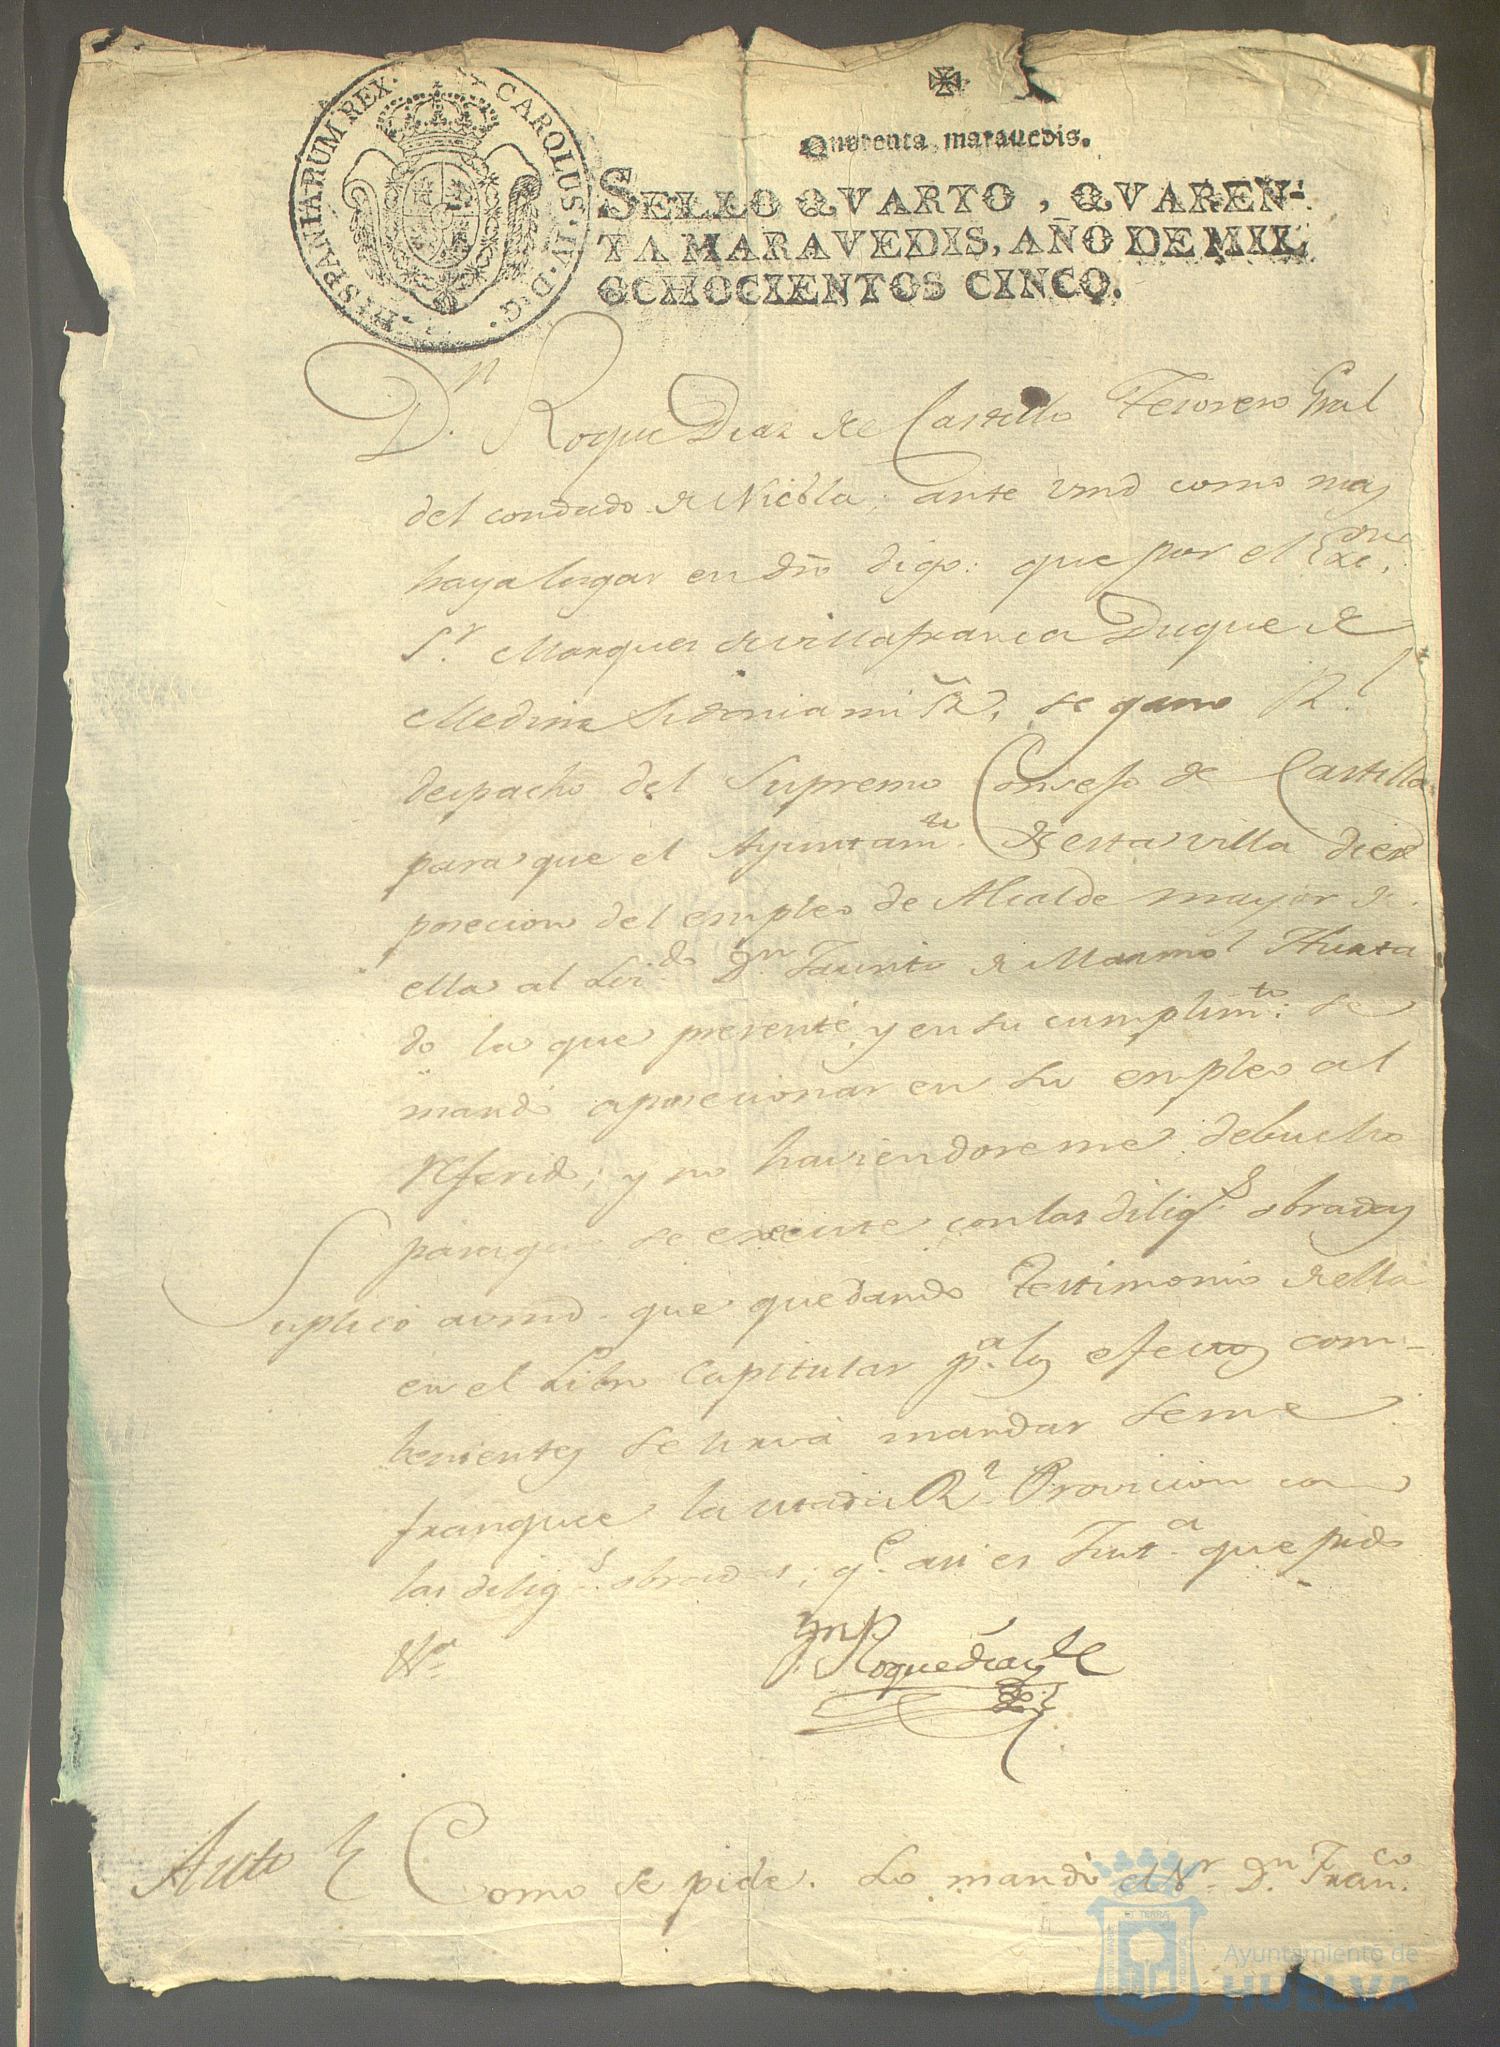 CAROLUS·IV·D·G·HISPANIARUM REX·
Quarenta maravedis.
SELLO QVARTO, QVAREN-
TA MARAVEDIS, AÑO DE MIL
OCHOCIENTOS CINCO.
Dn. Roque Diaz de Castillo Tesorero Gral
del condado de Niebla, ante Vmd como mas
haya lugar en dro digo: que por el Exmo.
Sr. Marques de villafranca Duque de
Medina Sidonia mi Sr., se gano Rl.
despacho del Supremo Consejo de Castilla
para que el Ayuntamto. de esta villa diera
posecion del empleo de Alcalde mayor de
ella al Licdo. Dn. Jacinto de Marmol Hurta
do la que presenté, y en su cumplimto. se
mandó aposecionar en su empleo al
referido; y no haviendoseme debuelto
para que se execute con las diligs. obradas
Suplico a vmd. que quedando testimonio de ella
en el Libro Capitular pa. los efectos com-
benientes se sirva mandar se me
franquee la citada Rl. Provicion con
las diligs. obradas; qe. asi es Justa. que pido
Va.
Roque diaz de
Auto Como se pide. Lo mandó el Sr. Dn. Franco.
Ayuntamiento de
HUELVA